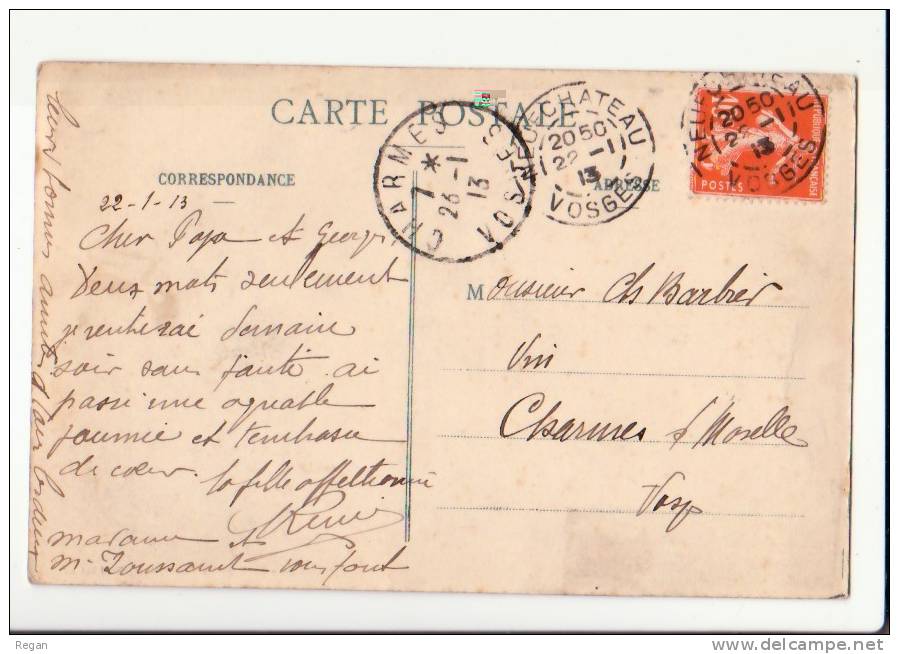 CARTE POSTALE
CORRESPONDANCE
ADRESSE
CHARMES
7 *
26 - 1
13
VOSGES
NEUFCHATEAU
20 50
22 - 1
13
VOSGES
NEUFCHATEAU
20 50
22 - 1
13
VOSGES
POSTES
22-1-13
Cher Papa et Georges
Deux mots seulement
je rentrerai demain
soir sans faute ai
passé une agréable
journée et t'embrasse
de coeur. ta fille affectionnée
madame et
Mr Toussaint vous font
leurs bonnes amitiés
Monsieur Ch Barbier
Vin
Charmes s/ Moselle
Vosges
Regan
delcampe.net